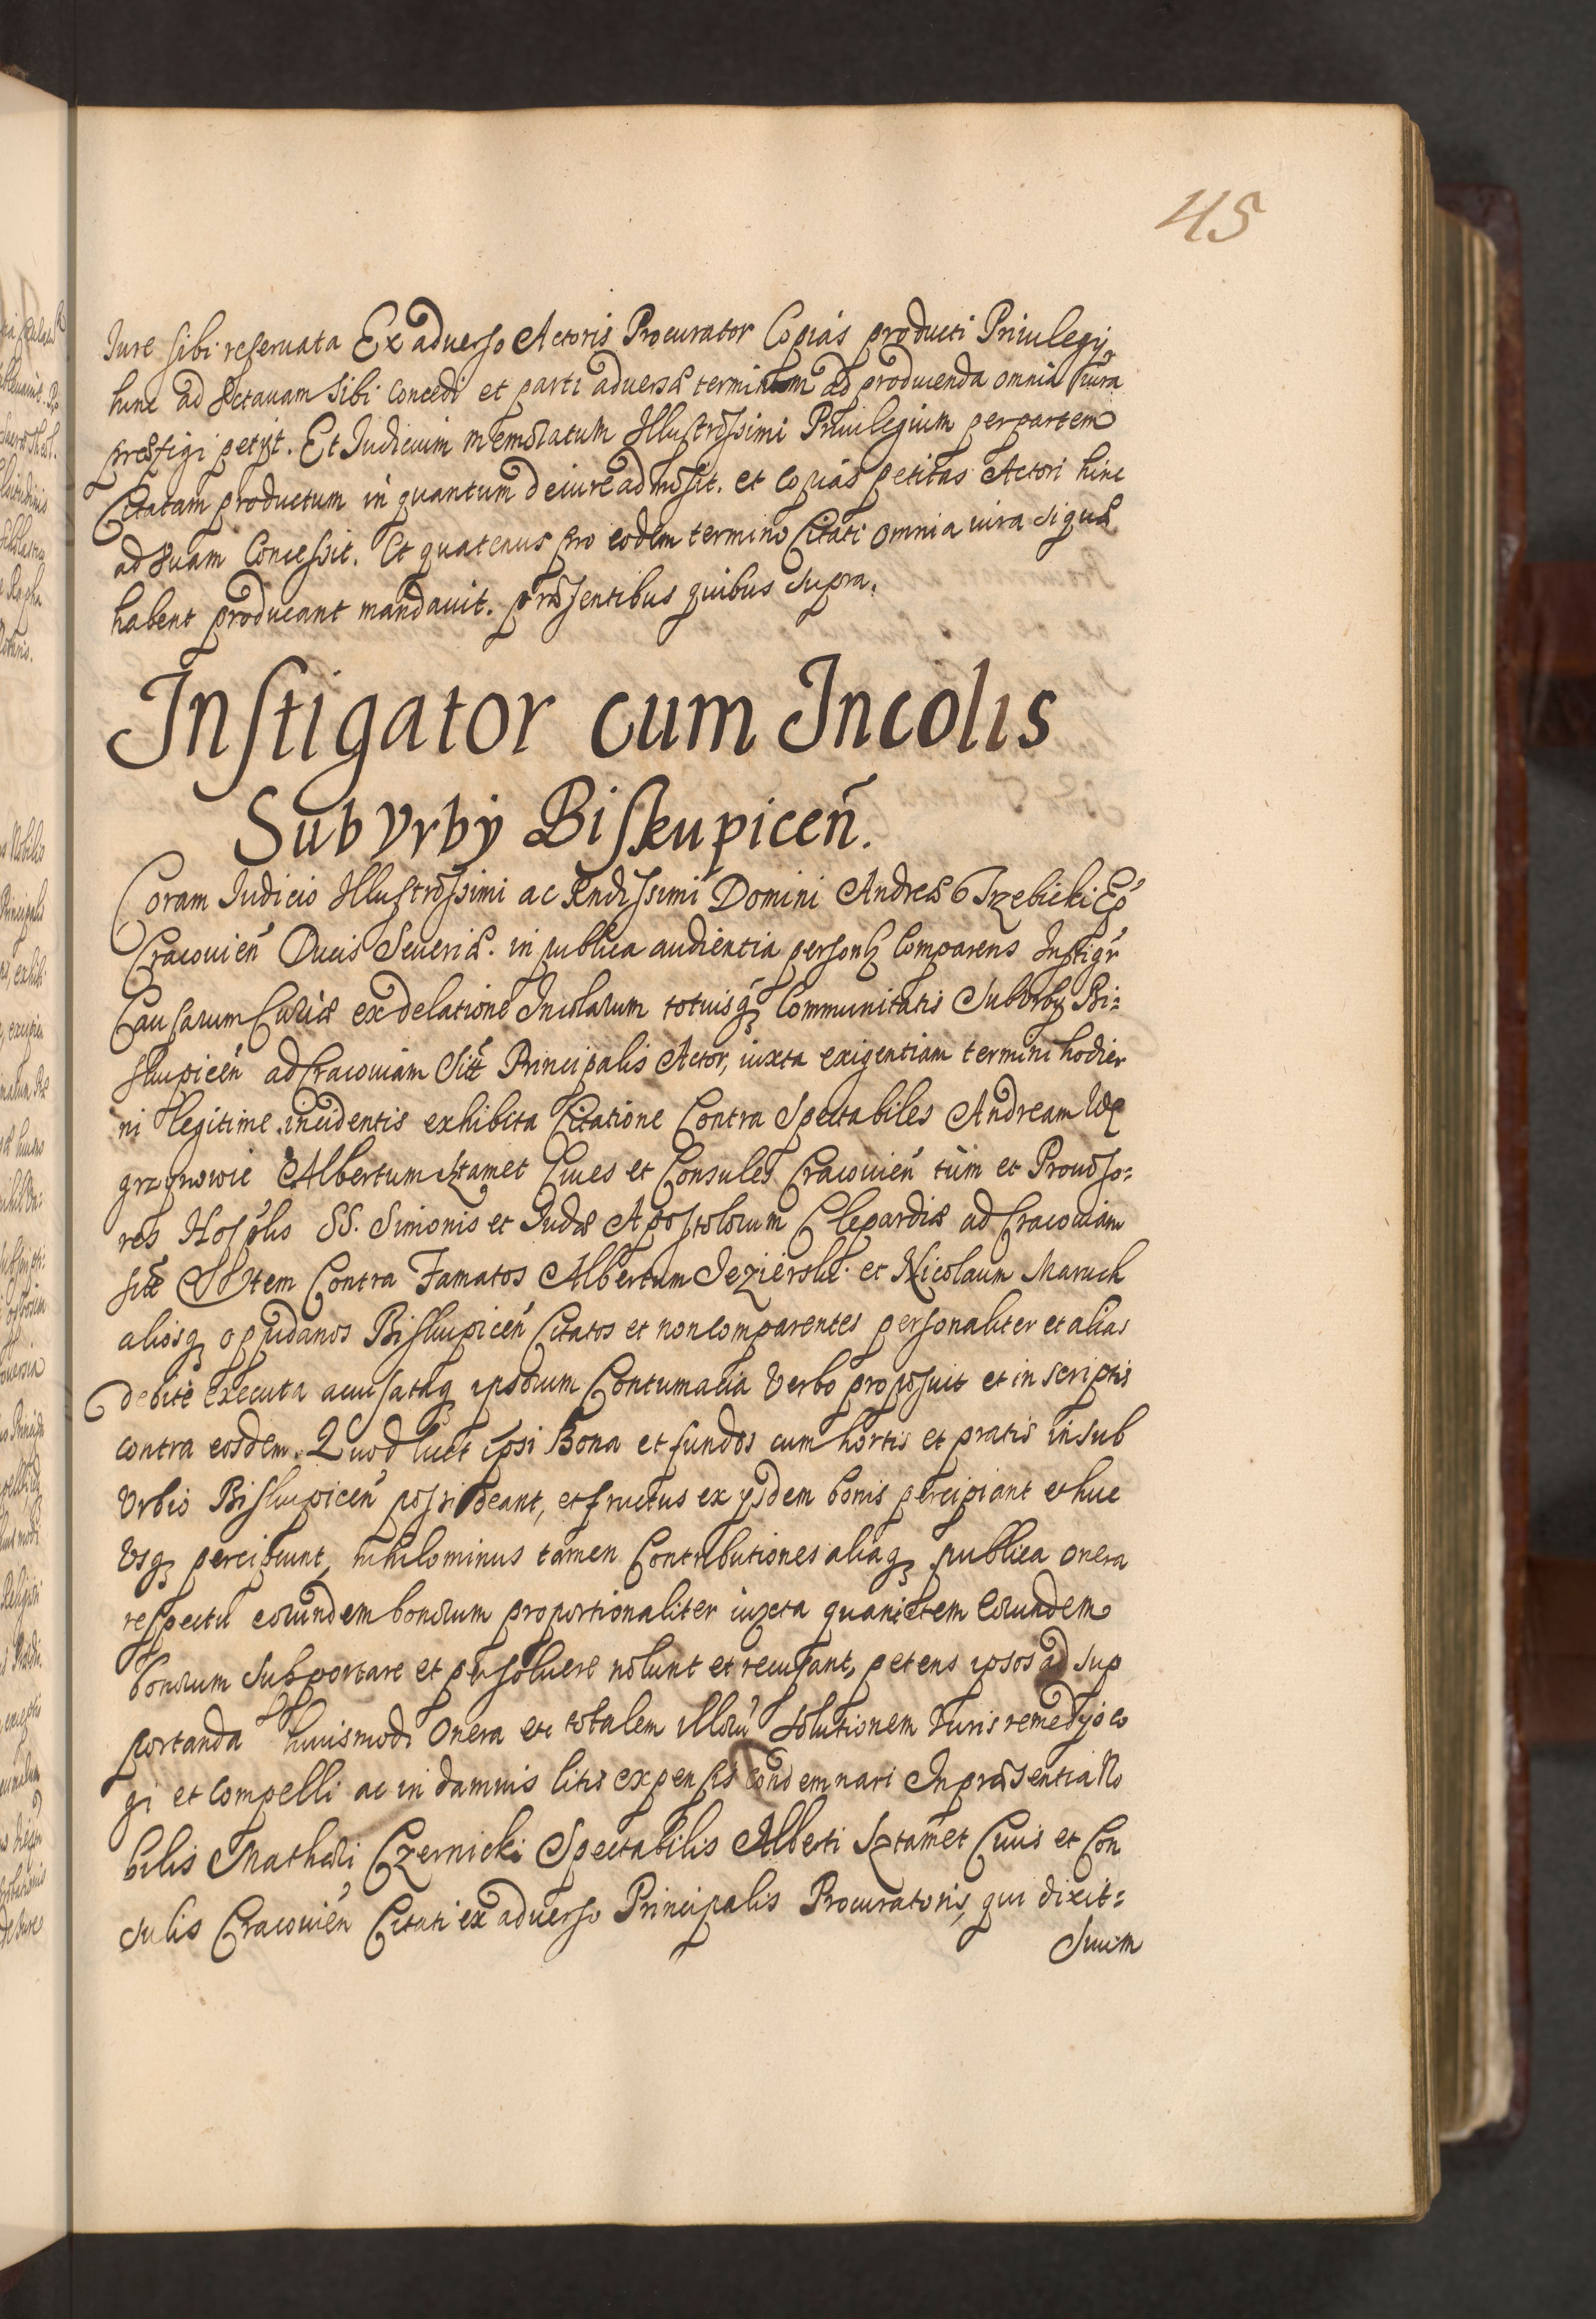 45
Iure sibi reseruata Ex aduerso Actoris Procurator Copias producti Priuilegij
hinc ad Octauam sibi concedi et parti aduersæ terminum ad producenda omnia iura
præfigi petijt. Et Iudicium memoratum Illustrissimi Priuilegium per partem
Citatam productum in quantum de iure admisit. et copias petitas Actori hinc
ad 8uam Concessit. Et quatenus pro eodem termino Citati omnia iura si quæ
habent producant mandauit. præsentibus quibus supra.
Instigator cum Incolis
SubVrbÿ Biskupiceñ.
Coram Iudicio Illustrissimi ac Rndissimi Domini Andreæ Trzebicki Ep̃
Cracouień Ducis Seueriæ. in publica audientia personlr comparens Instigr
Causarum Curiæ ex delatione Incolarum totiusq; Communitatis SubVrbij Bi=
skupiceń ad Cracouiam Sitæ Principalis Actor, iuxta exigentiam termini hodier
ni legitime incidentis exhibita Citatione Contra Spectabiles Andream
Albertum Sztamet Ciues et Consules Cracouień tum et Prouiso=
res Hosplis SS. Simonis et Iudæ Apostolorum Clepardiæ ad Cracouiam
sitæ Item Contra Famatos Albertum Jezierski et Nicolaum Maruch
aliosq; oppidanos Biskupiceń Citatos et non comparentes personaliter et alias
debite executa accusataq; ipsorum Contumatia Verbo proposuit et in scriptis
contra eosdem. Quod licet ipsi Bona et fundos cum hortis et pratis in sub
Vrbio Biskupiceń possideant, et fructus ex ijsdem bonis percipiant et huc
Vsq; percipiunt, nihilominus tamen Contributiones aliaq; publica onera
respectu eorundem bonorum proportionaliter iuxta quantitem eorundem
bonorum subportare et persoluere nolunt et recusant, petens ipsos ad sup
portanda huiusmodi onera et totalem illorũ solutionem Iuris remedijs co
gi et compelli ac in damnis litis expensis condemnari In præsentia No
bilis Mathæi Czernicki Spectabilis Alberti Sztamet Ciuis et Con
sulis Cracouień Citati ex aduerso Principalis Procuratoris, qui dixit=
Suum